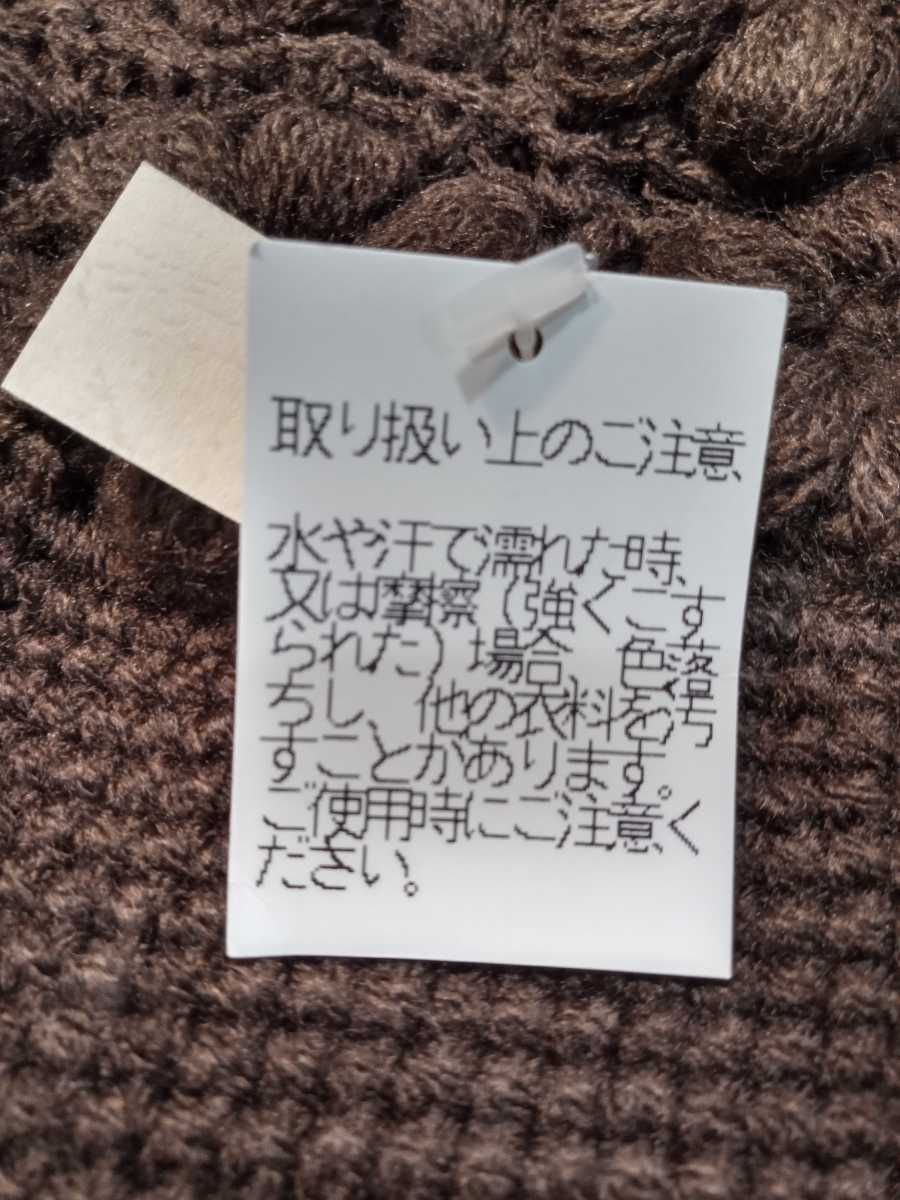 取り扱い上のご注意
水や汗で濡れた時、
又は摩擦（強くこす
られた）場合、色落
ちし、他の衣料を汚
すことがあります。
ご使用時にご注意く
ださい。